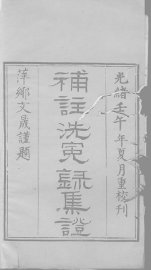 光緒壬午年夏月重校刊
補註洗冤録集證
萍鄉文晟謹題